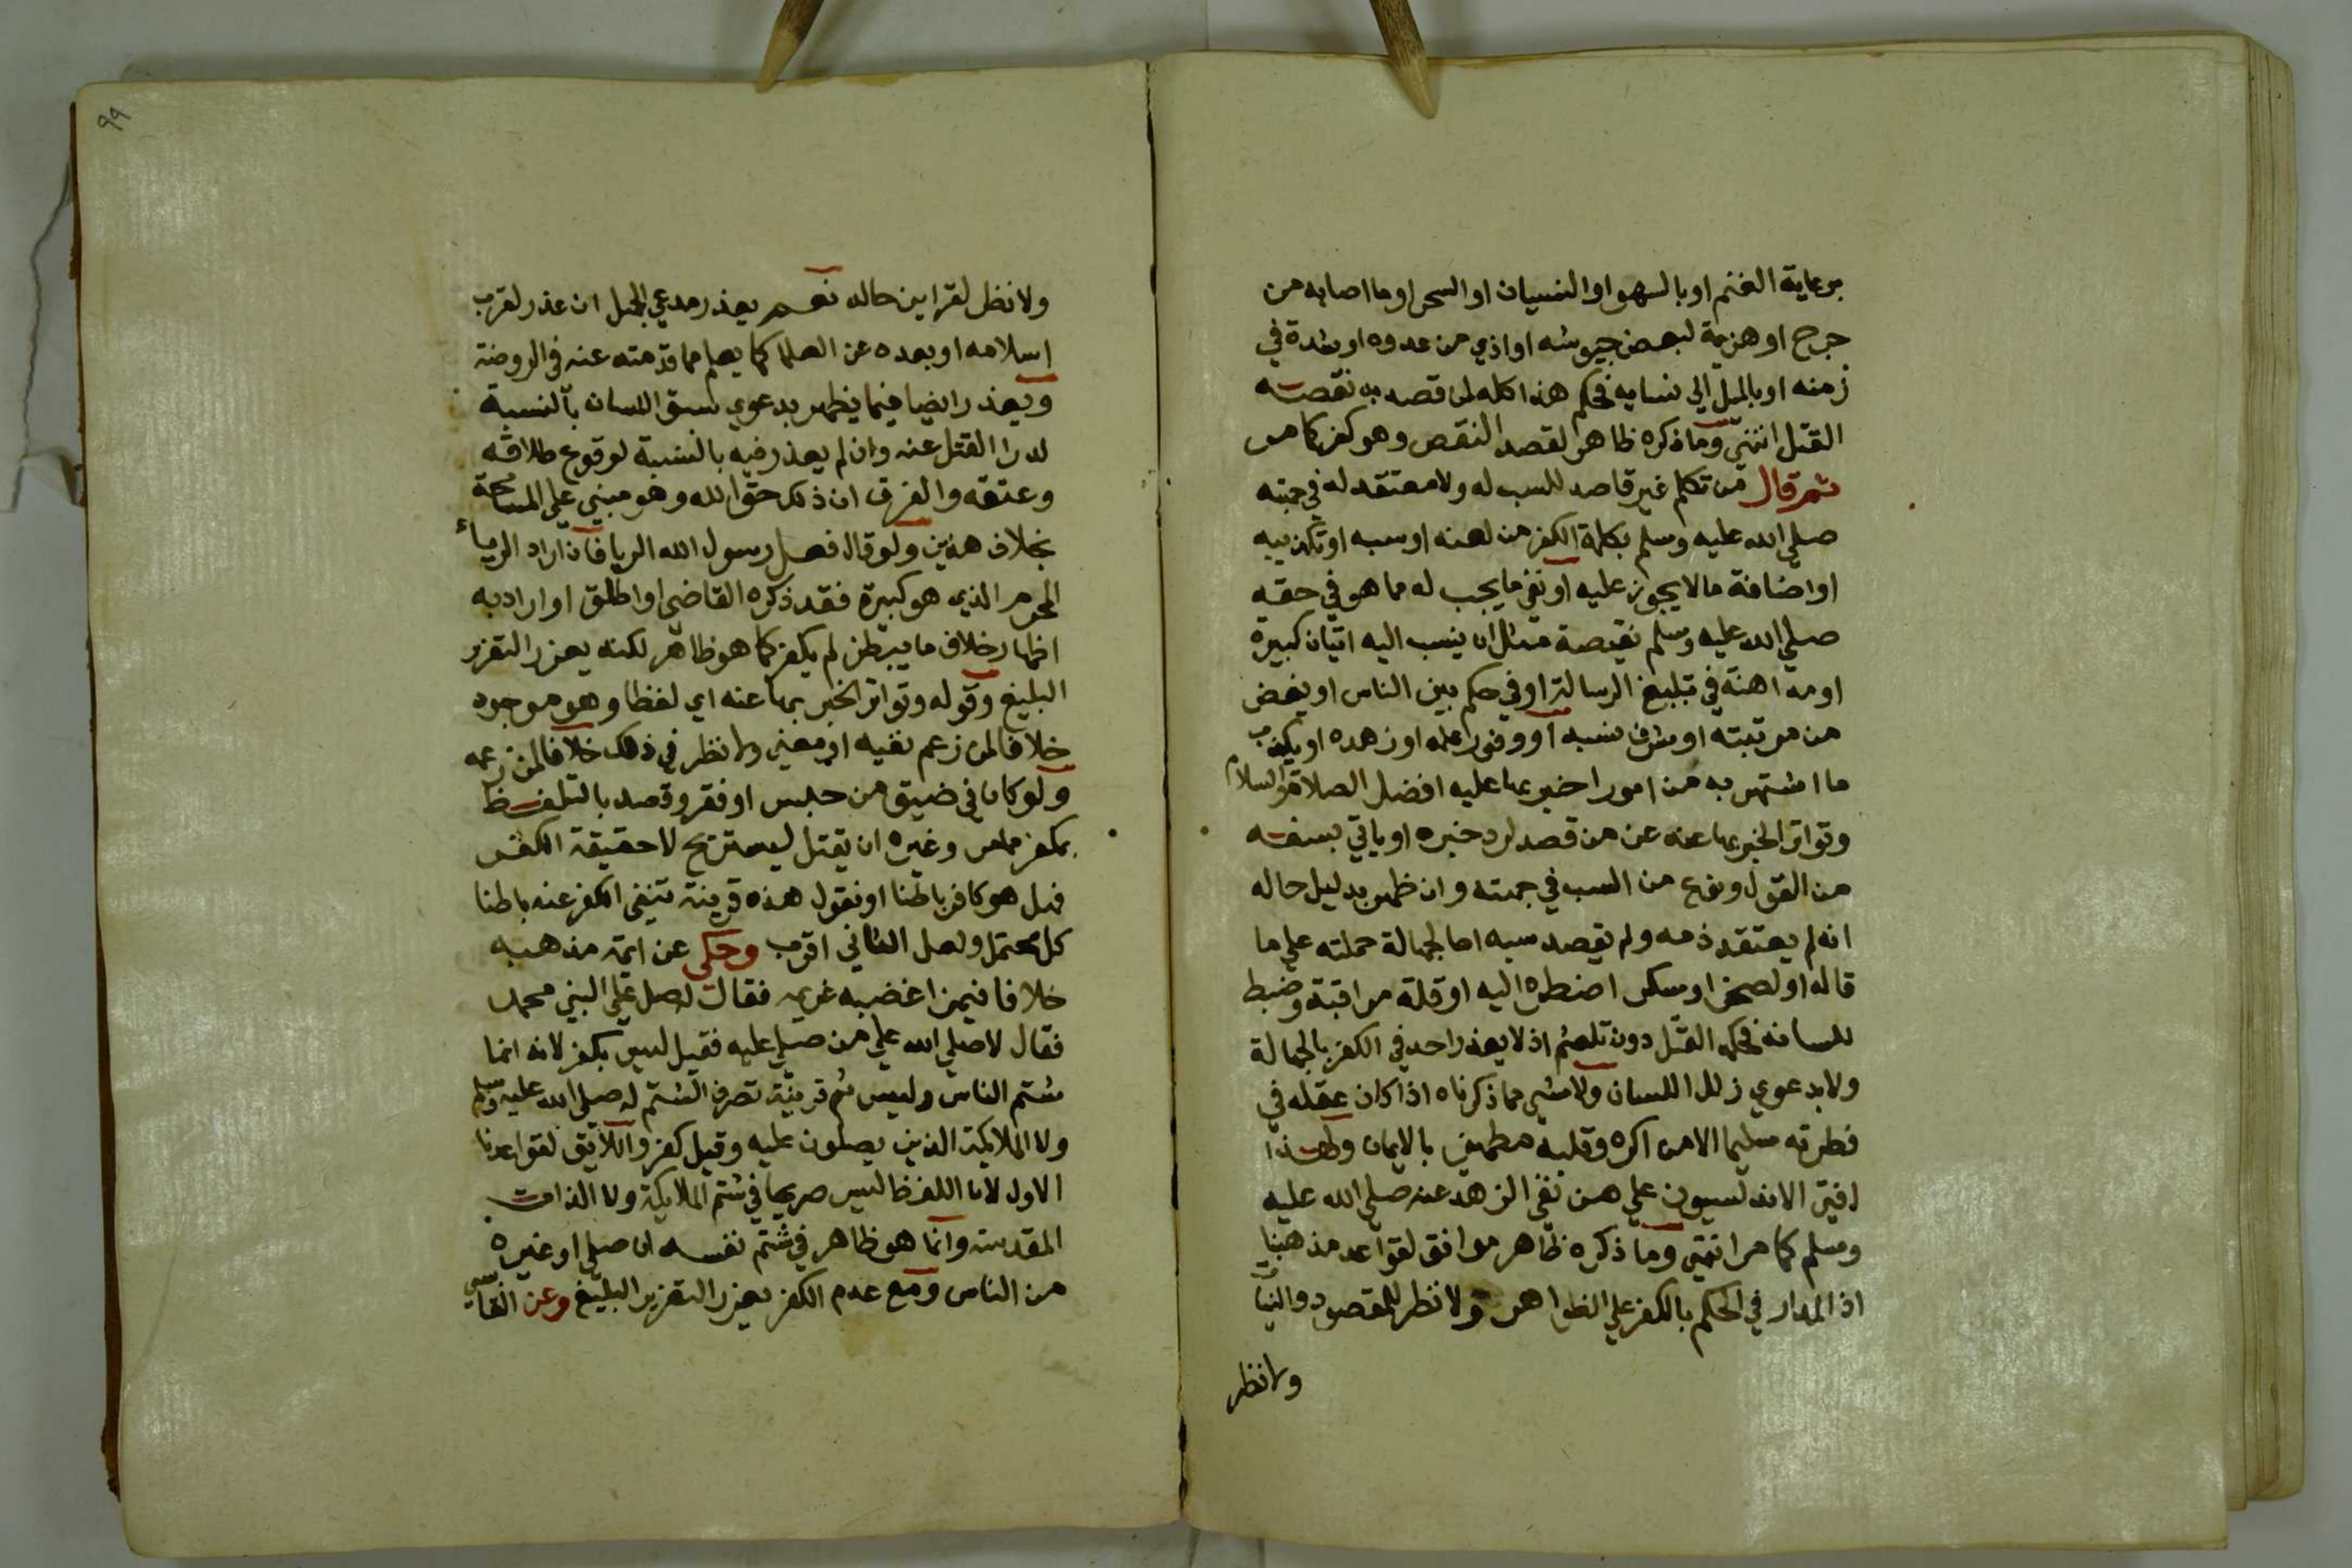 برعاية الغنم او بالسهو او النسيان او السحر او ما اصابه من
جرح او هزيمة لبعض جيوشه او اذي من عدوه او شدة في
زمنه او بالميل الي نسايه فحكم هذا كله لمن قصد به نقصه
القتل انتهي وما ذكره ظاهر لقصد النقص وهو كفر كما مر
ثم قال من تكلم غير قاصد للسب له ولا معتقد له في جهته
صلي الله عليه وسلم بكلمة الكفر من لعنه او سبه او تكذيبه
او اضافة ما لا يجوز عليه او نفي ما يجب له مما هو في حقه
صلي الله عليه وسلم نقيصة مثل ان ينسب اليه اتيان كبيرة
او مداهنة في تبليغ الرسالة او في حكم بين الناس او يغض
من مرتبته او شرف نسبه او وفور علمه او زهده او يكذب
ما اشتهر به من امور اخبر بها عليه افضل الصلاة والسلام
وتواتر الخبر بها عنه عن من قصد لرد خبره او ياتي بسفه
من القول ونوع من السب في جهته وان ظهر بدليل حاله
انه لم يعتقد ذمه ولم يقصد سبه اما لجهالة حملته علي ما
قاله او لضجر او سكر اضطره اليه او قلة مراقبة وضبط
للسانه فحكمه القتل دون تلعثم اذ لا يعذر احد في الكفر بالجهالة
ولا بدعوي زلل اللسان ولا بشي مما ذكرناه اذا كان عقله في
فطرته سليما الا من اكره وقلبه مطمئن بالايمان ولهذا
افتي الاندلسيون علي من نفي الزهد عنه صلي الله عليه
وسلم كما مر انتهي وما ذكره ظاهر موافق لقواعد مذهبنا
اذ المدار في الحكم بالكفر علي الظواهر ولا نظر للمقصود والنيات
ولا نظر
ولا نظر لقراين حاله نعم يعذر مدعي الجهل ان عذر لقرب
اسلامه او بعده عن العلما كما يعلم مما قدمته عنه في الروضة
ويعذر ايضا فيما يظهر بدعوي سبق اللسان بالنسبة
لدرا القتل عنه وان لم يعذر فيه بالنسبة لوقوع طلاقه
وعتقه والفرق ان ذلك حق الله وهو مبني علي المسامحة
بخلاف هذين ولو قال فعل رسول الله الريا فان اراد الرياء
المحرم الذي هو كبيرة فقد ذكره القاضي او اطلق او اراد به
اظهار خلاف ما يبطن لم يكفر كما هو ظاهر لكنه يعزر التعزير
البليغ وقوله وتواتر الخبر بها عنه اي لفظا وهو موجود
خلافا لمن زعم نفيه او معني ولا نظر في ذلك خلافا لمن زعمه
ولو كان في ضيق من حبس او فقر وقصد بالتلفظ
بمكفر مامر وغيره ان يقتل ليستريح لا حقيقة الكفر
فهل هو كافر باطنا او نقول هذه قرينة تنفي الكفر عنه باطنا
كل محتمل ولعل الثاني اقرب وحكي عن ائمة مذهبه
خلافا فيمن اغضبه غريمه فقال له صل علي النبي محمد
فقال لا صلي الله علي من صلي عليه فقيل ليس بكفر لانه انما
شتم الناس وليس ثم قرينة تصرف الشتم له صلي الله عليه وسلم
ولا الملايكة الذين يصلون عليه وقيل كفر واللايق لقواعدنا
الاول لان اللفظ ليس صريحا في شتم الملايكة ولا الذات
المقدسة وانما هو ظاهر في شتم نفسه ان صلي او غيره
من الناس ومع عدم الكفر يعزر التعزير البليغ وعن القابسي
٩٩